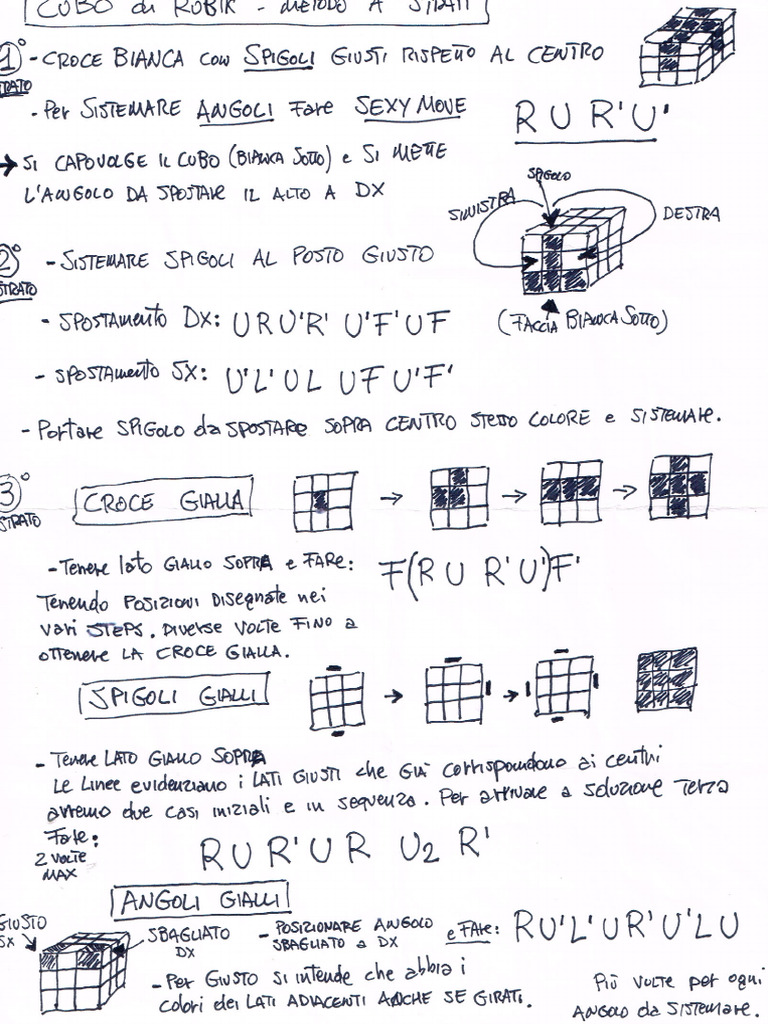 CUBO di RUBIK - METODO A STRATI
1° STRATO
- CROCE BIANCA con SPIGOLI GIUSTI RISPETTO AL CENTRO
- Per SISTEMARE ANGOLI Fare SEXY MOVE R U R' U'
→ SI CAPOVOLGE IL CUBO (BIANCA SOTTO) e SI METTE
L'ANGOLO DA SPOSTARE IL ALTO A DX
SPIGOLO
SINISTRA
DESTRA
(FACCIA BIANCA SOTTO)
2° STRATO
- SISTEMARE SPIGOLI AL POSTO GIUSTO
- SPOSTAMENTO DX: U R U' R' U' F' U F
- SPOSTAMENTO SX: U' L' U L U F U' F'
- Portare SPIGOLO da SPOSTARE SOPRA CENTRO STESSO COLORE e SISTEMARE.
3° STRATO
CROCE GIALLA → → →
- Tenere lato GIALLO SOPRA e FARE: F(R U R' U')F'
Tenendo POSIZIONI DISEGNATE nei
vari STEPS. DIVERSE VOLTE FINO a
OTTENERE LA CROCE GIALLA.
SPIGOLI GIALLI → →
- Tenere LATO GIALLO SOPRA
Le Linee evidenziano i LATI GIUSTI che GIÀ corrispondono ai centri
avremo due casi iniziali e in sequenza. Per arrivare a soluzione Terza
Fare:
2 VOLTE
MAX
R U R' U R U2 R'
ANGOLI GIALLI
GIUSTO
SX
SBAGLIATO
DX
- POSIZIONARE ANGOLO
SBAGLIATO a DX
e FARE: R U' L' U R' U' L U
- Per GIUSTO SI intende che abbia i
colori dei LATI ADIACENTI ANCHE SE GIRATI.
Più volte per ogni
ANGOLO da SISTEMARE.